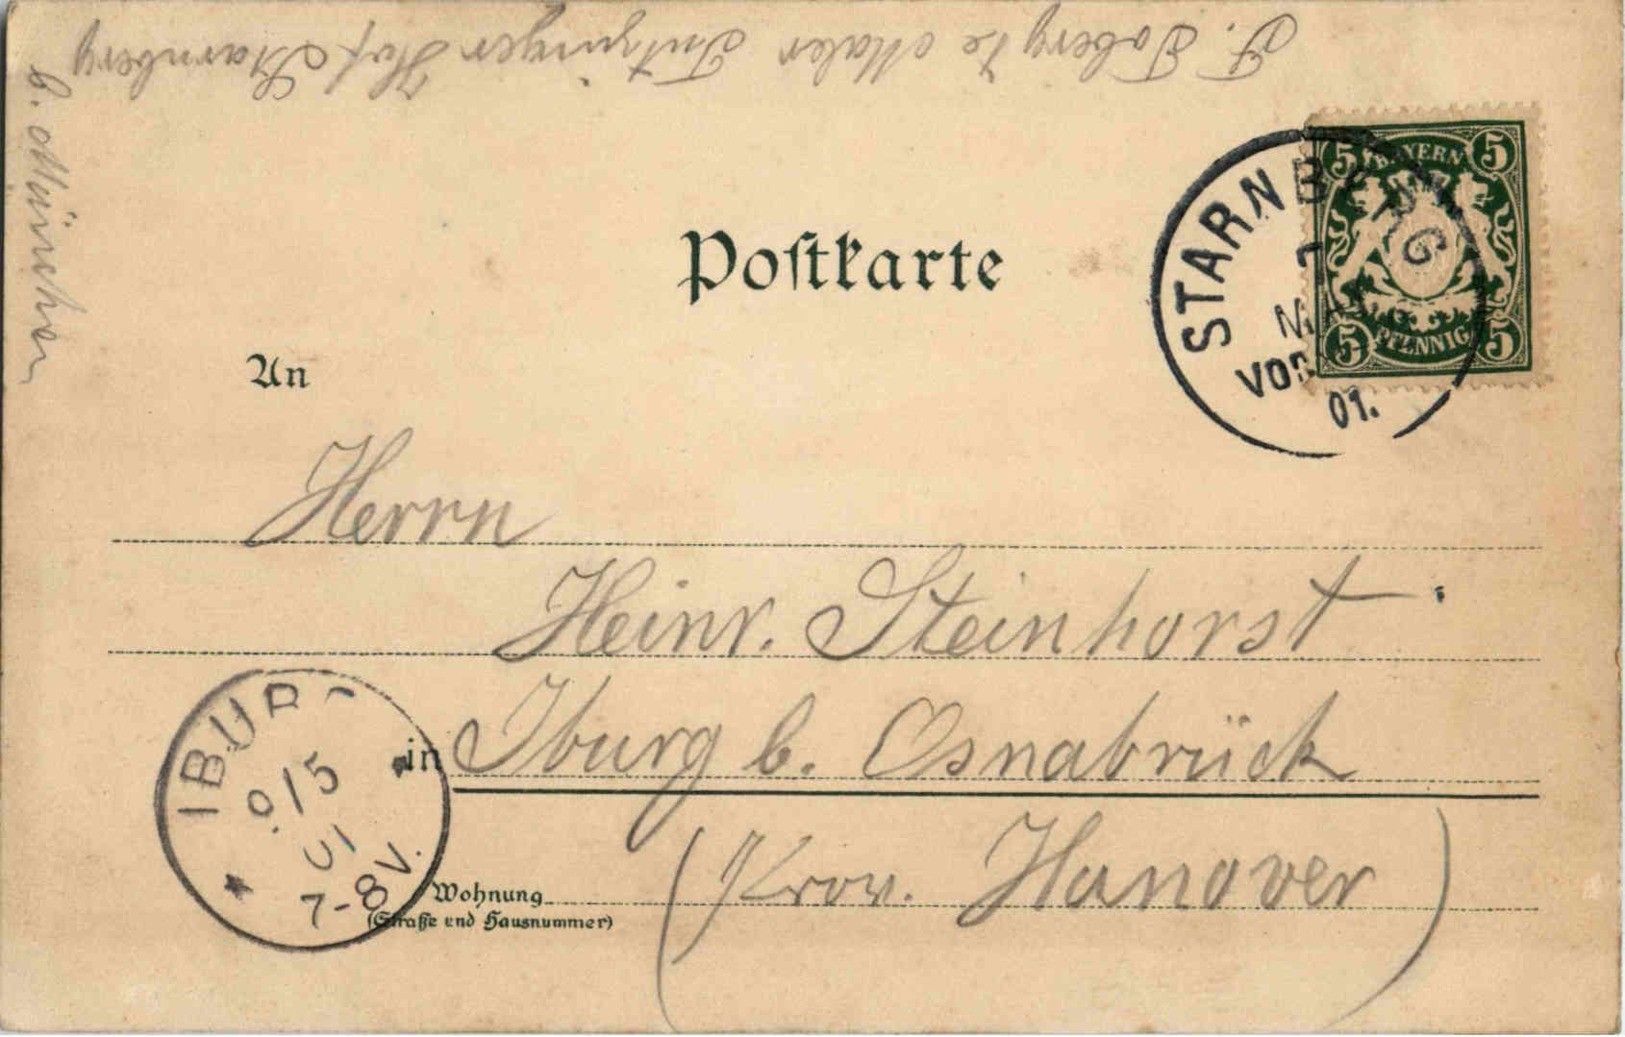 Maler Tutzinger Hof Starnberg
b. München
Postkarte
BAYERN
5 5
5 PFENNIG 5
STARNBERG
VOR
01.
An
Herrn
Heinr. Steinhorst
in Iburg b. Osnabrück
(Prov. Hanover)
Wohnung
(Straße und Hausnummer)
IBURG
9/5
01
7-8V.